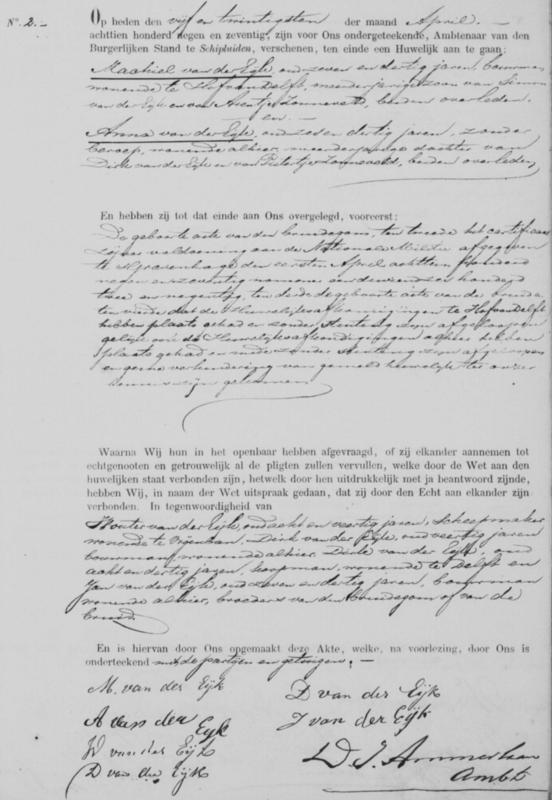 N°. 2. –
Op heden den vijf en twintigsten der maand April. –
achttien honderd negen en zeventig, zijn voor Ons ondergeteekende, Ambtenaar van den
Burgerlijken Stand te Schipluiden, verschenen, ten einde een Huwelijk aan te gaan:
Machiel van der Eijk, oud zeven en dertig jaren, bouwman
wonende te Hof van Delft, meerderjarige zoon van Simon
van der Eijk en van Arentje Zonneveld, beiden overleden.
– en –
Anna van der Eijk, oud zes en dertig jaren, zonder
beroep, wonende alhier, meerderjarige dochter van
Dirk van der Eijk en van Pietertje Zonneveld, beiden overleden
En hebben zij tot dat einde aan Ons overgelegd, vooreerst:
De geboorte acte van den bruidegom, ten tweede het certificaat
zijner voldoening aan de Nationale Militie afgegeven
te 's Gravenhage den eersten April achttien honderd
negen en zeventig nummer een duizend honderd
twee en negentig, ten derde de geboorte acte van de bruid
ten vierde dat de Huwelijksafkondigingen te Hof van Delft
hebben plaats gehad en zonder stuiting zijn afgeloopen
gelijk ook de Huwelijksafkondigingen alhier hebben
plaats gehad en mede zonder stuiting zijn afgeloopen
en geene verhindering van gemeld huwelijk ter onzer
kennis zijn gekomen.
Waarna Wij hun in het openbaar hebben afgevraagd, of zij elkander aannemen tot
echtgenooten en getrouwelijk al de pligten zullen vervullen, welke door de Wet aan den
huwelijken staat verbonden zijn, hetwelk door hen uitdrukkelijk met ja beantwoord zijnde,
hebben Wij, in naam der Wet uitspraak gedaan, dat zij door den Echt aan elkander zijn
verbonden. In tegenwoordigheid van
Wouter van der Eijk, oud acht en veertig jaren, scheepmaker
wonende te Vrijenban, Dirk van der Eijk, oud veertig jaren
bouwman, wonende alhier, Dirk van der Eijk, oud
acht en dertig jaren, koopman, wonende te Delft en
Jan van der Eijk, oud zeven en dertig jaren, bouwman
wonende alhier, broeders van den bruidegom of van de
bruid.
En is hiervan door Ons opgemaakt deze Akte, welke, na voorlezing, door Ons is
onderteekend met de partijen en getuigen. –
M. van der Eijk
D van der Eijk
A van der Eijk
J van der Eijk
W van der Eijk
D van der Eijk
D. J. Ammerlaan
Ambt